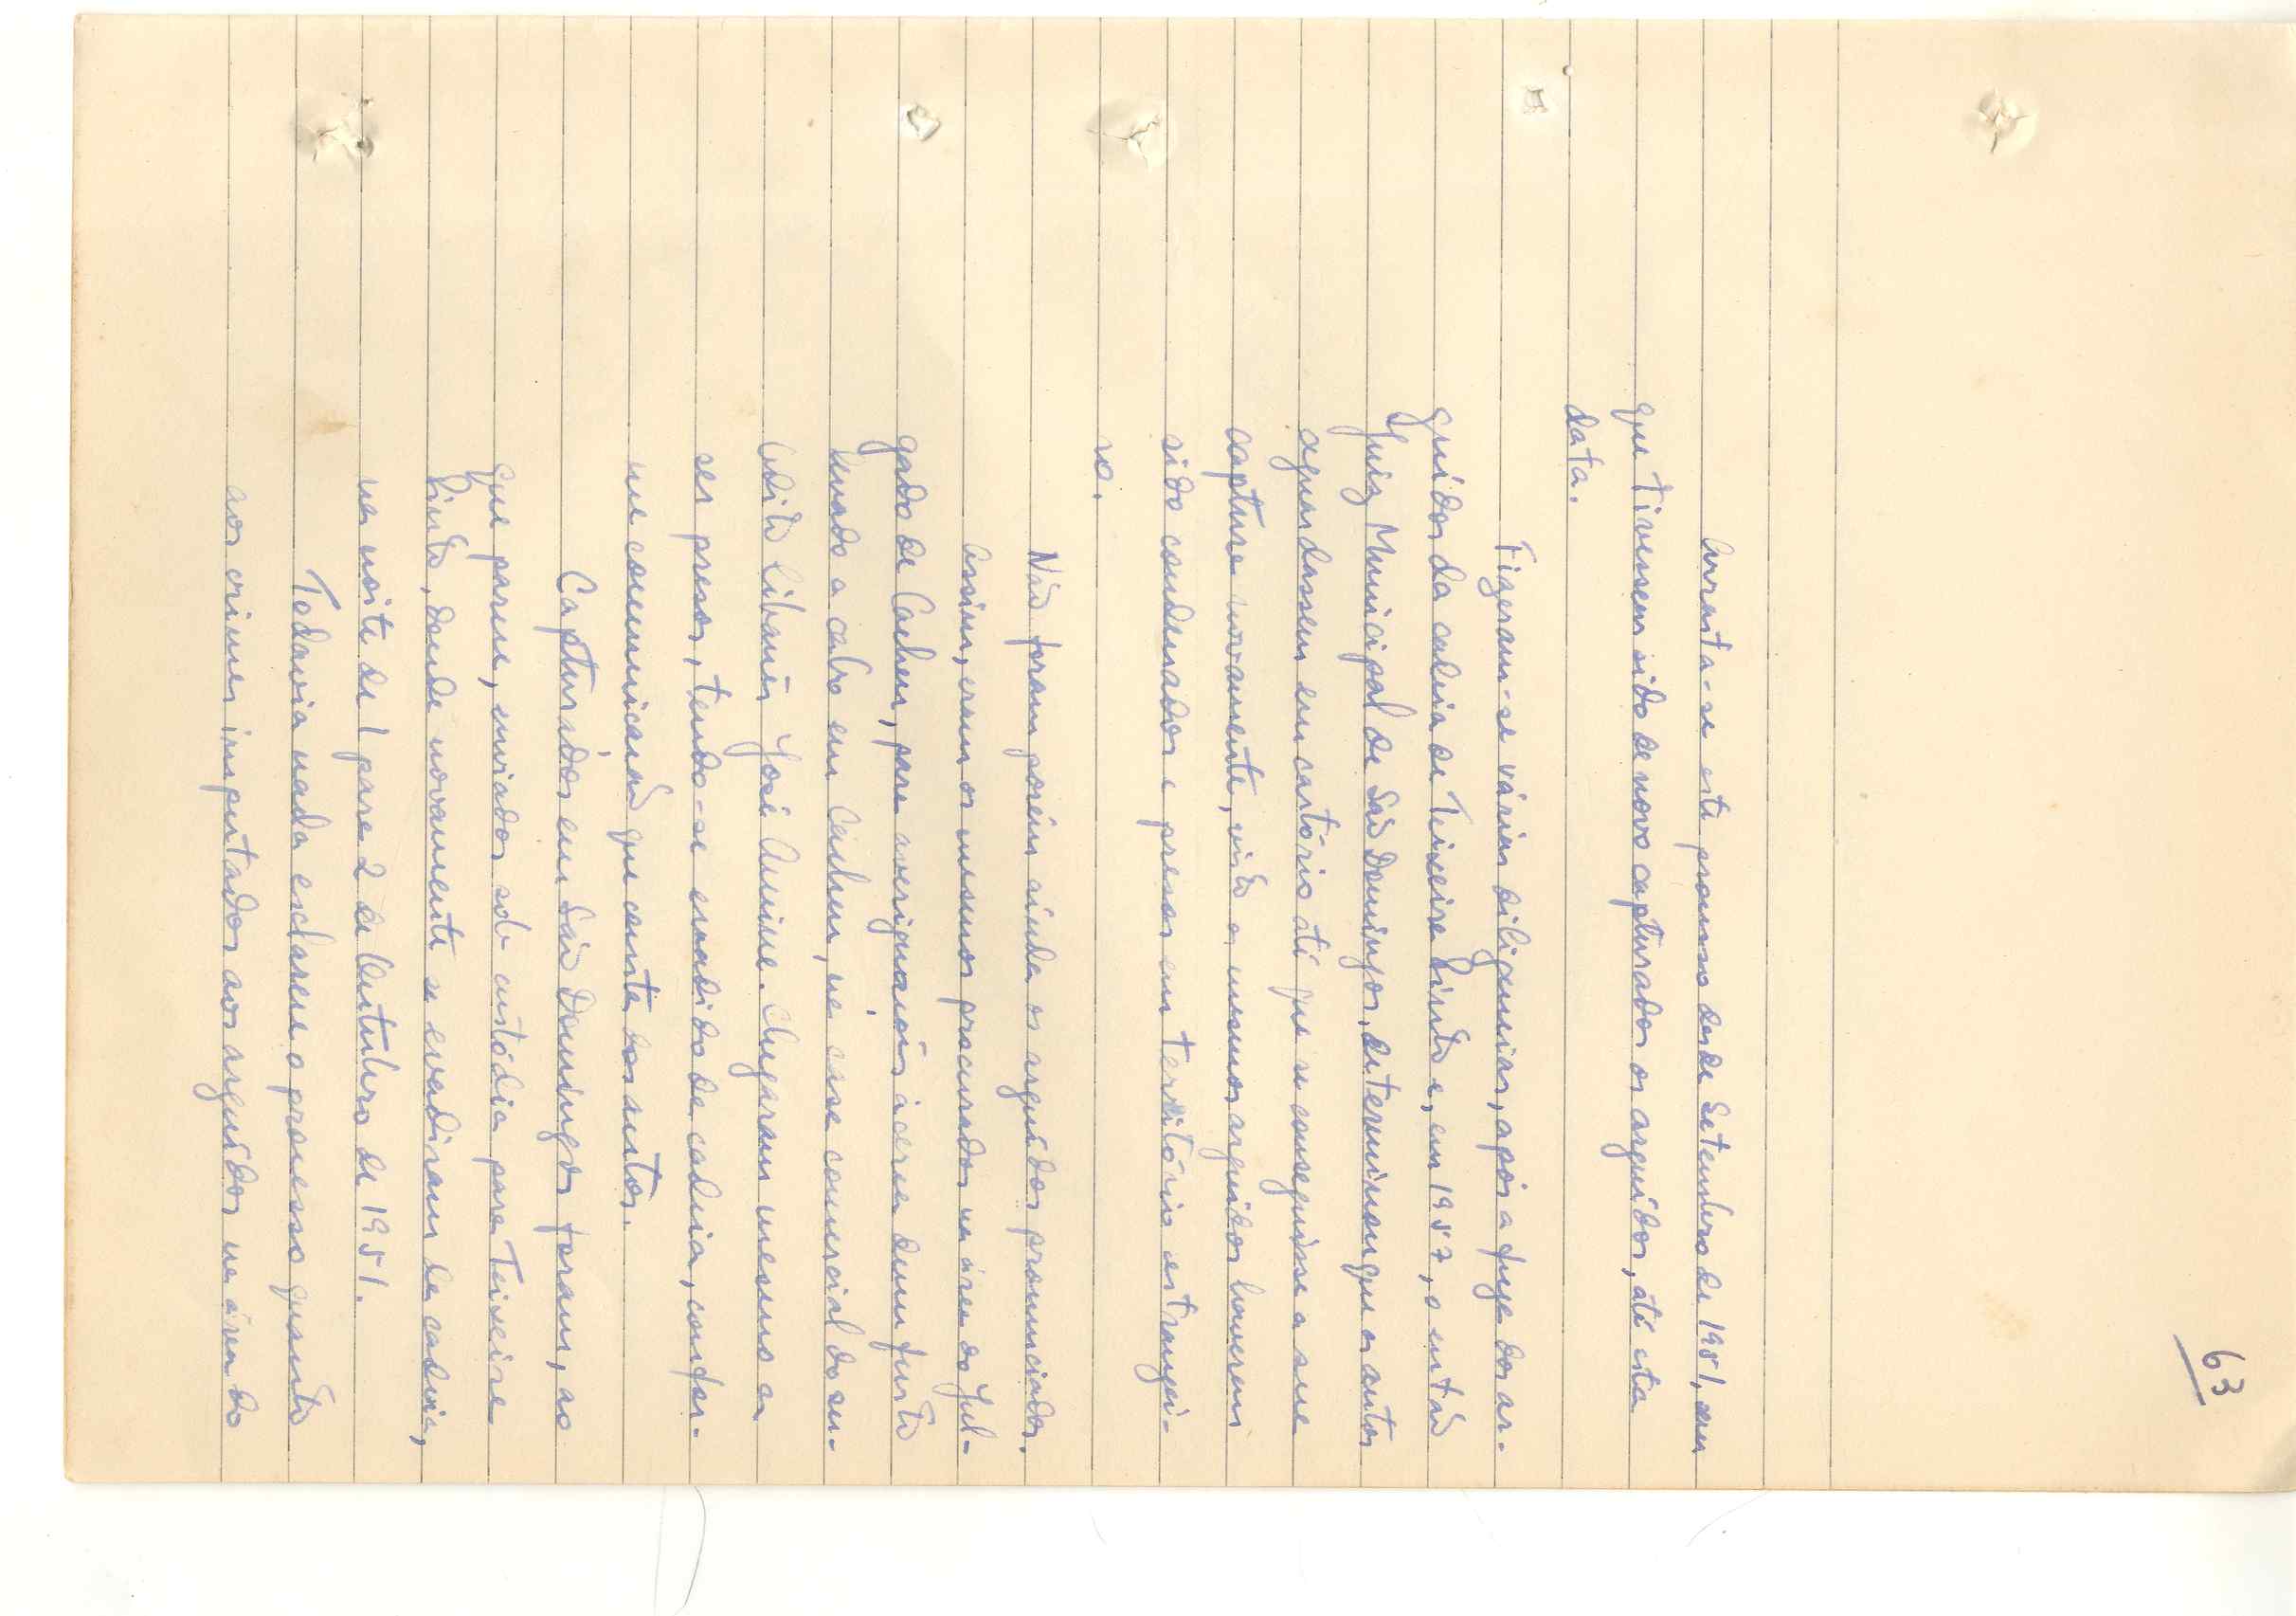 63
Arrasta-se este processo desde Setembro de 1951, sem
que tivessem sido de novo capturados os arguidos, até esta
data.
Fizeram-se várias diligencias, após a fuga dos ar-
guidos da cadeia de Teixeira Pinto e, em 1957, o então
Juiz Municipal de São Domingos, determinou que os autos
aguardassem em cartório até que se conseguisse a sua
captura novamente, visto os mesmos arguidos haverem
sido condenados e presos em território estrangei-
ro.
Não foram porém ainda os arguidos pronunciados.
Assim, eram os mesmos procurados na área do Jul-
gado de Cacheu, para averiguações àcerca dum furto
levado a cabo em Cacheu, na casa comercial do su-
bdito libanês José Amine. Chegaram mesmo a
ser presos, tendo-se evadido da cadeia, confor-
me comunicação que consta dos autos.
Capturados em São Domingos foram, ao
que parece, enviados sob custódia para Teixeira
Pinto, donde novamente se evadiram da cadeia,
na noite de 1 para 2 de Outubro de 1951.
Todavia nada esclarece o processo quanto
aos crimes imputados aos arguidos na área do